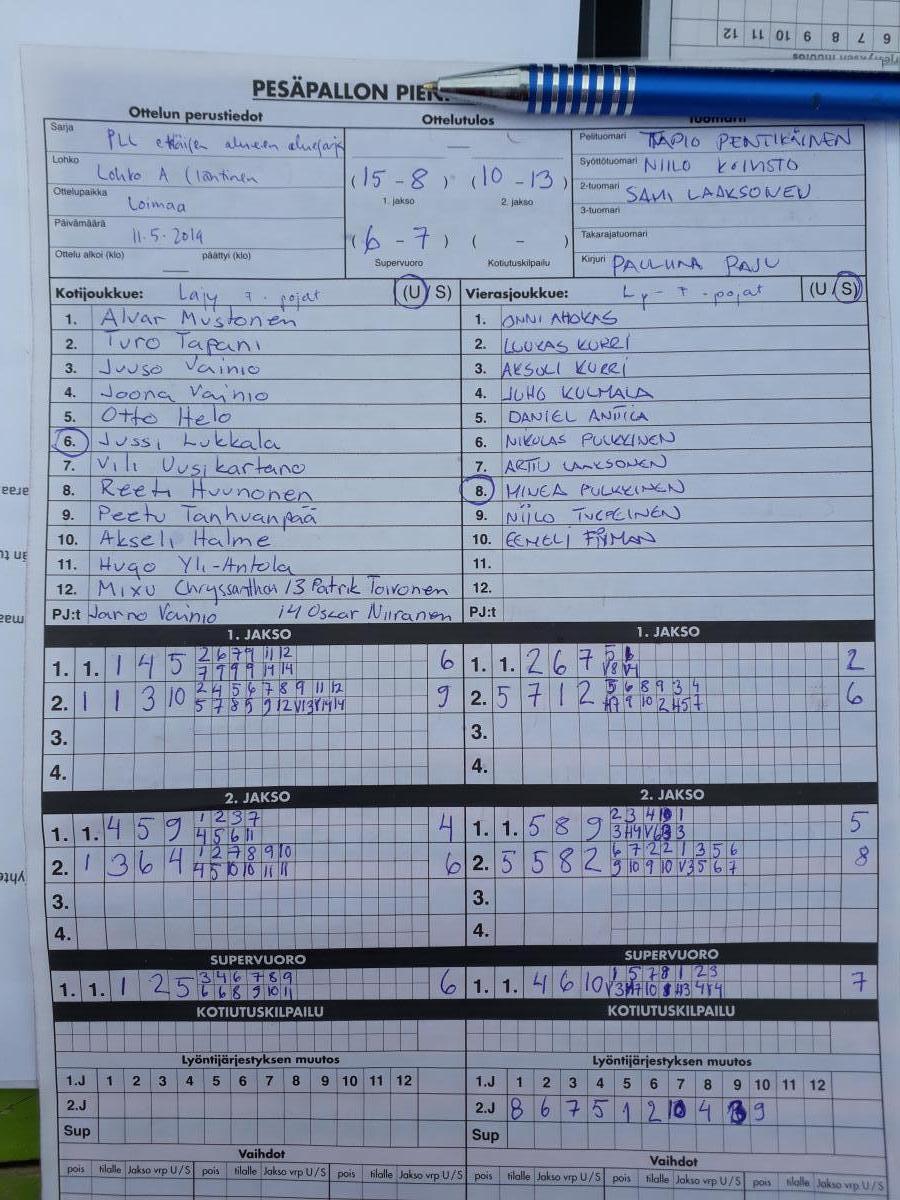 6 7 8 9 10 11 12
PESÄPALLON PIEN
Ottelun perustiedot
Ottelutulos
Tuomarit
Sarja PLL eteläisen alueen aluesarja
Lohko Lohko A (läntinen
Ottelupaikka Loimaa
Päivämäärä 11.5.2019
Ottelu alkoi (klo) päättyi (klo)
—
(15 - 8) (10 - 13)
1. jakso 2. jakso
(6 - 7) ( - )
Supervuoro Kotiutuskilpailu
Pelituomari TAPIO PENTIKÄINEN
Syöttötuomari NIILO KOIVISTO
2-tuomari SAMI LAAKSONEN
3-tuomari
Takarajatuomari
Kirjuri PAULIINA RAJU
Kotijoukkue: LaJy 7. pojat (U / S)
1. Alvar Mustonen
2. Turo Tapani
3. Juuso Vainio
4. Joona Vainio
5. Otto Helo
6. Jussi Lukkala
7. Vili Uusikartano
8. Reeti Huunonen
9. Peetu Tanhuanpää
10. Akseli Halme
11. Hugo Yli-Antola
12. Mixu Chryssanthou 13 Patrik Toivonen
PJ:t Jarno Vainio 14 Oscar Niiranen
Vierasjoukkue: Ly - 7 -pojat (U / S)
1. ONNI AHOKAS
2. LUUKAS KURRI
3. AKSULI KURRI
4. JUHO KULMALA
5. DANIEL ANTTILA
6. NIKOLAS PULKKINEN
7. ARTTU LAAKSONEN
8. MINEA PULKKINEN
9. NIILO
10. EEMELI
11.
12.
PJ:t
1. JAKSO
1. 1. 1 4 5 2 6 7 9 11 12 6
7 7 9 9 14 14
2. 1 1 3 10 2 4 5 6 7 8 9 11 12 9
5 7 8 5 9 12 V13 V14 14
3.
4.
1. JAKSO
1. 1. 2 6 7 5 6 2
V8 V4
2. 5 7 1 2 5 6 8 9 3 4 6
H7 9 10 2 H5 7
3.
4.
2. JAKSO
1. 1. 4 5 9 1 2 3 7 4
4 5 6 11
2. 1 3 6 4 1 2 7 8 9 10 6
4 5 10 10 11 11
3.
4.
2. JAKSO
1. 1. 5 8 9 2 3 4 10 1 5
3 H4 V6 3 3
2. 5 5 8 2 6 7 2 2 1 3 5 6 8
9 10 9 10 V3 5 6 7
3.
4.
SUPERVUORO
1. 1. 1 2 5 3 4 6 7 8 9 6
6 6 8 9 10 11
SUPERVUORO
1. 1. 4 6 10 1 5 7 8 1 2 3 7
V3 H7 10 8 H3 4 V4
KOTIUTUSKILPAILU
KOTIUTUSKILPAILU
Lyöntijärjestyksen muutos
1.J 1 2 3 4 5 6 7 8 9 10 11 12
2.J
Sup
Lyöntijärjestyksen muutos
1.J 1 2 3 4 5 6 7 8 9 10 11 12
2.J 8 6 7 5 1 2 10 4 3 9
Sup
Vaihdot
pois tilalle Jakso vrp U / S pois tilalle Jakso vrp U / S pois tilalle Jakso vrp U / S
Vaihdot
pois tilalle Jakso vrp U / S pois tilalle Jakso vrp U / S pois tilalle Jakso vrp U / S